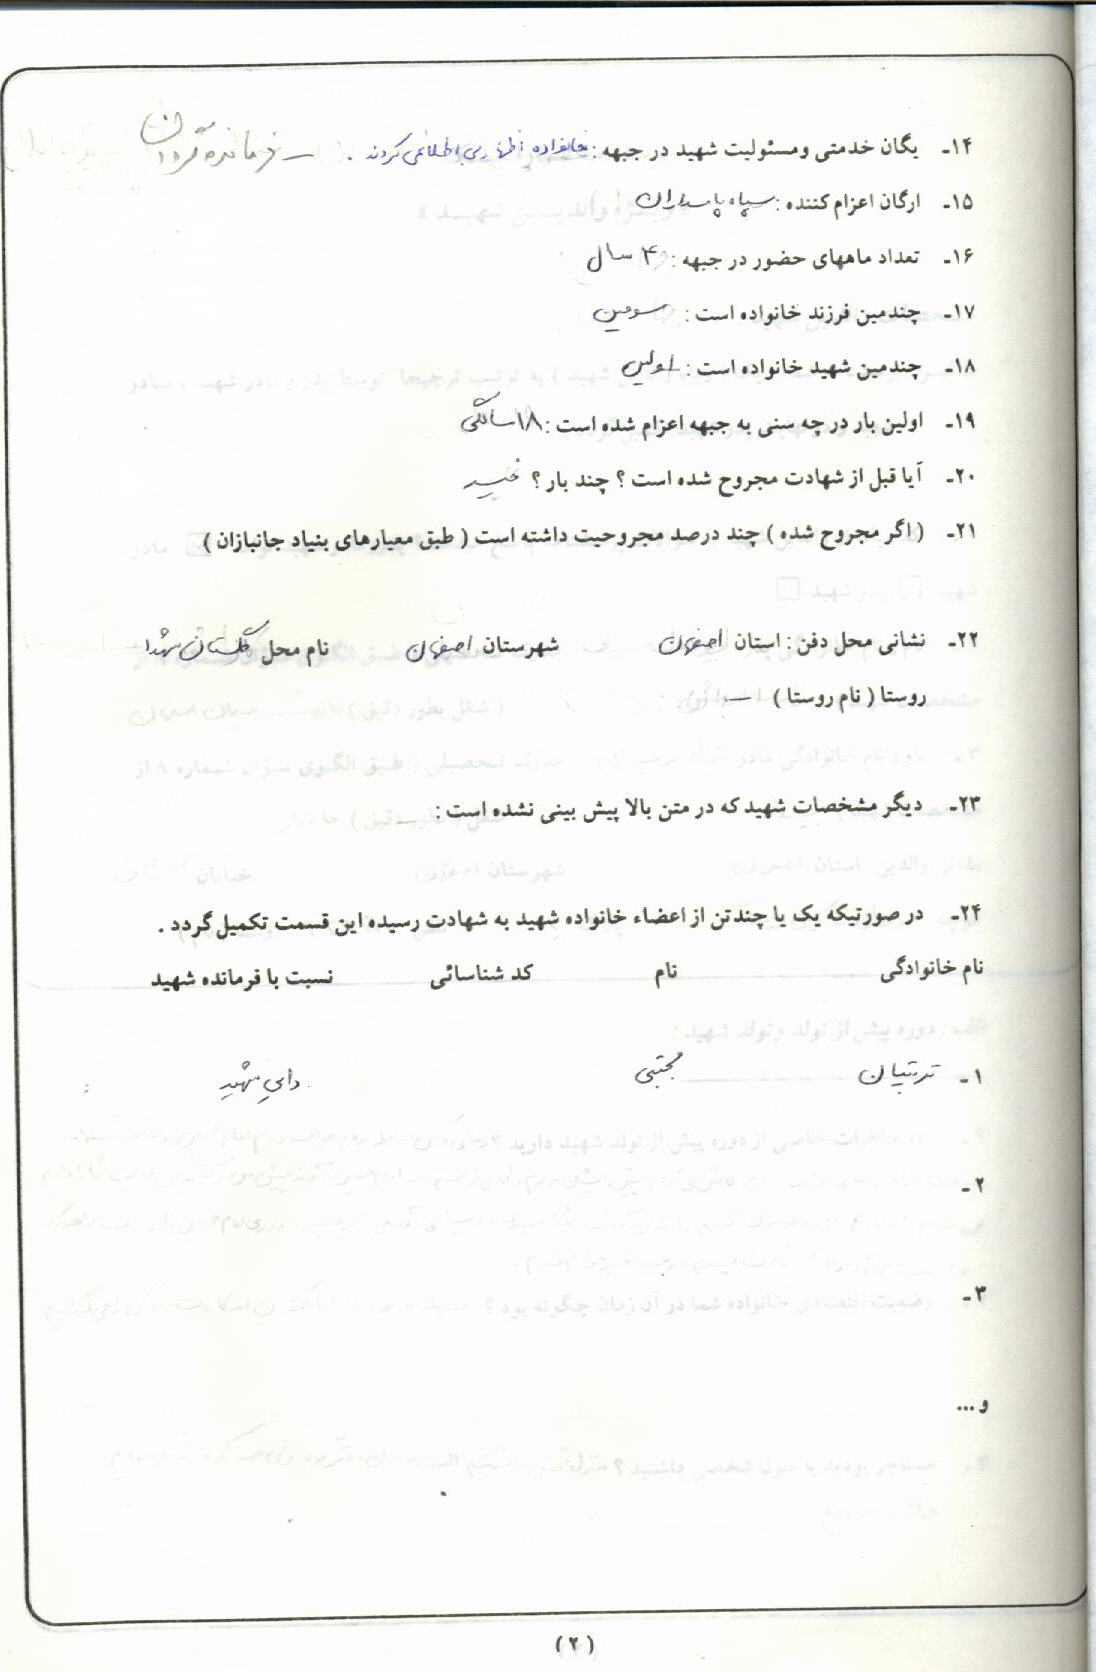 ۱۴ـ یگان خدمتی ومسئولیت شهید در جبهه : خانواده اظهار بی اطلاعی کردند . ـ فرمانده گردان
۱۵ـ ارگان اعزام کننده : سپاه پاسداران
۱۶ـ تعداد ماههای حضور در جبهه : ۴ سال
۱۷ـ چندمین فرزند خانواده است : سومین
۱۸ـ چندمین شهید خانواده است : اولین
۱۹ـ اولین بار در چه سنی به جبهه اعزام شده است : ۱۸ سالگی
۲۰ـ آیا قبل از شهادت مجروح شده است ؟ چند بار ؟ خیر
۲۱ـ ( اگر مجروح شده ) چند درصد مجروحیت داشته است ( طبق معیارهای بنیاد جانبازان )
۲۲ـ نشانی محل دفن : استان اصفهان شهرستان اصفهان نام محل گلستان شهدا
روستا ( نام روستا ) ـ
۲۳ـ دیگر مشخصات شهید که در متن بالا پیش بینی نشده است :
۲۴ـ در صورتیکه یک یا چندتن از اعضاء خانواده شهید به شهادت رسیده این قسمت تکمیل گردد .
نام خانوادگی نام کد شناسائی نسبت با فرمانده شهید
۱ـ تربتیان مجتبی دایی شهید
۲ـ
۳ـ
و...
(۲)